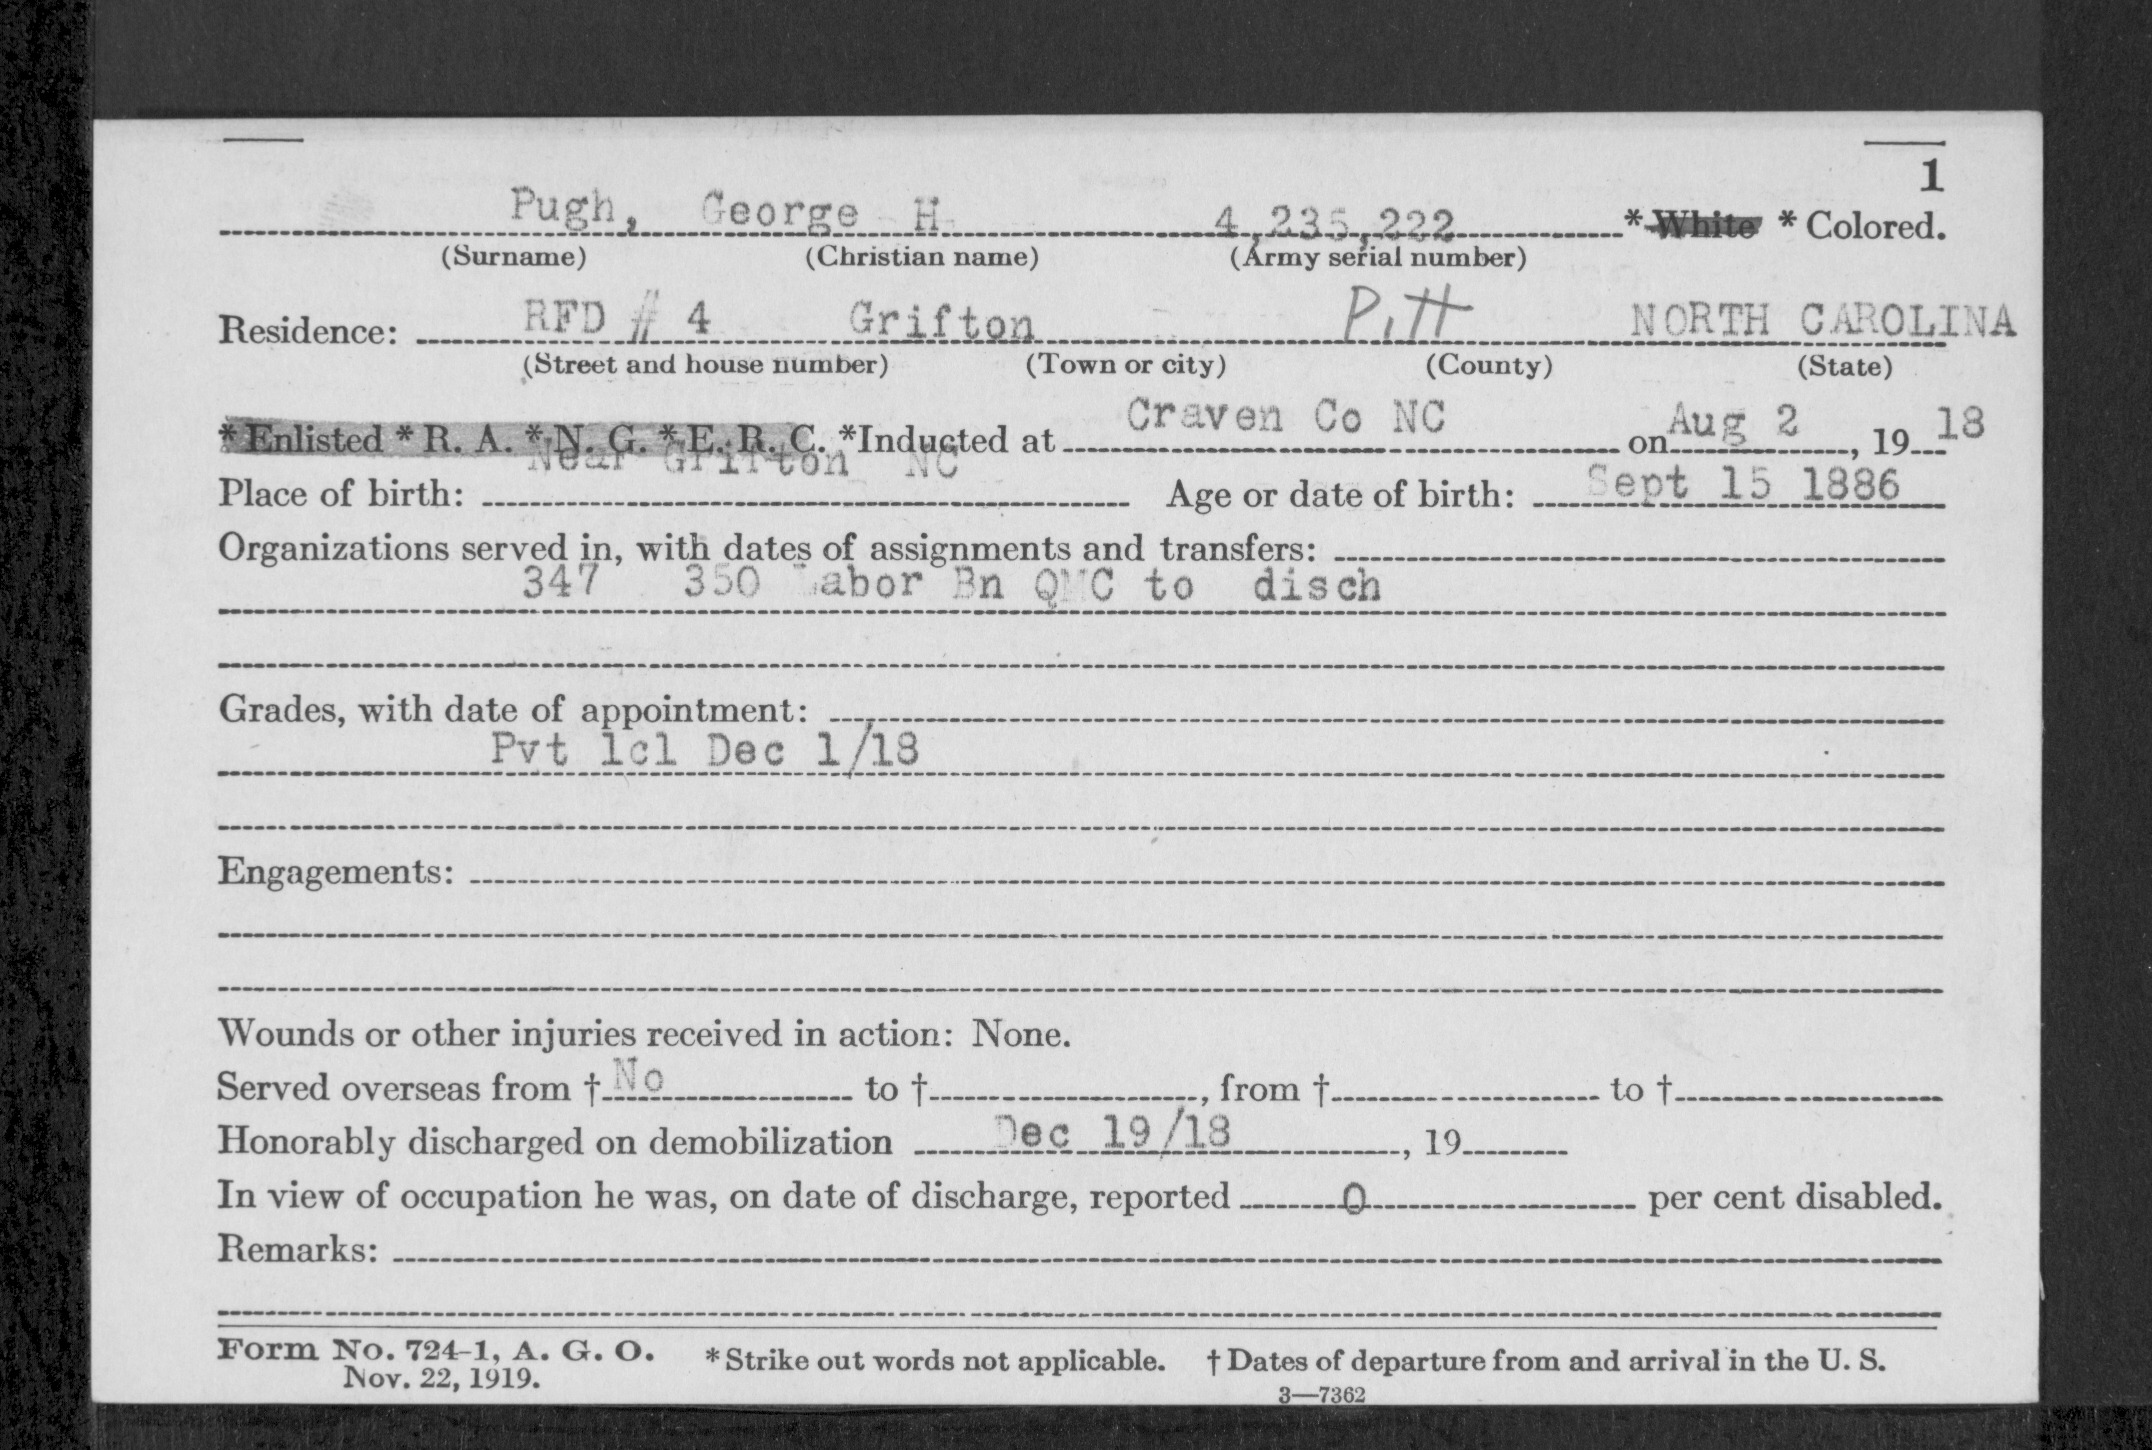 1
Pugh, George H 4,235,222 *White *Colored.
(Surname) (Christian name) (Army serial number)
Residence: RFD # 4 Grifton Pitt NORTH CAROLINA
(Street and house number) (Town or city) (County) (State)
*Enlisted *R. A. *N. G. *E. R. C. *Inducted at Craven Co NC on Aug 2, 1918
Place of birth: Near Grifton NC Age or date of birth: Sept 15 1886
Organizations served in, with dates of assignments and transfers:
347 350 Labor Bn QMC to disch
Grades, with date of appointment:
Pvt 1cl Dec 1/18
Engagements:
Wounds or other injuries received in action: None.
Served overseas from † No to †, from † to †
Honorably discharged on demobilization Dec 19/18, 19
In view of occupation he was, on date of discharge, reported 0 per cent disabled.
Remarks:
Form No. 724-1, A. G. O. *Strike out words not applicable. †Dates of departure from and arrival in the U. S.
Nov. 22, 1919.
3—7362